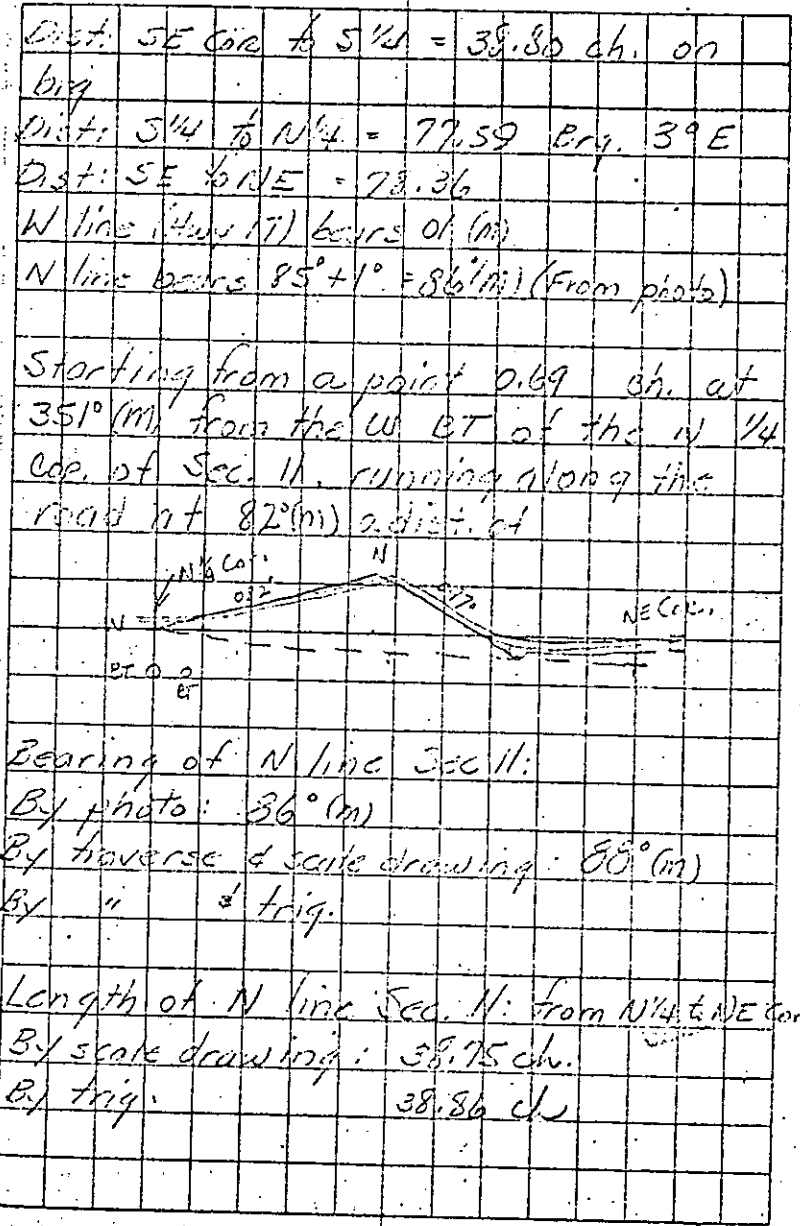 Dist: SE Cor to S 1/4 = 38.80 ch. on
brg
Dist: S 1/4 to N 1/4 = 77.59 Brg. 3° E
Dist: SE to NE = 78.36
W line (Hwy 17) bears 01 (m)
N line bears 85° + 1° = 86° (m) (From photo)
Starting from a point 0.69 ch. at
351° (m) from the W BT of the N 1/4
Cor. of Sec. 11, running along the
road at 82° (m) a dist. of
N 1/4 Cor.
N
082°
NE Cor.
BT
BT
Bearing of N line Sec 11:
By photo: 86° (m)
By traverse & scale drawing: 88° (m)
By " & trig.
Length of N line Sec. 11: from N 1/4 to NE Cor
By scale drawing: 38.75 ch.
By trig: 38.86 ch